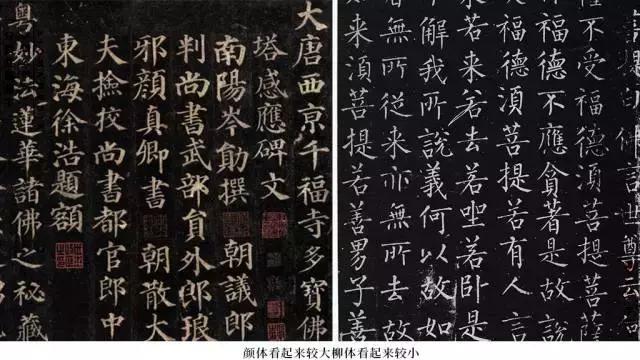 大唐西亰千福寺多寶佛
塔感應碑文
南陽岑勛撰 朝議郎
判尚書武部貟外郎琅
邪顔真卿書 朝散大
夫撿校尚書都官郎中
東海徐浩題額
粵妙法蓮華諸佛之秘藏
佛言世尊云
不受福德湏菩提菩薩
福德不應貪著是故
福德湏菩提若有人言
来若来若去若坐若卧是
解我所說義何以故如
者無所從来亦無所去故
来湏菩提若善男子善
颜体看起来较大柳体看起来较小